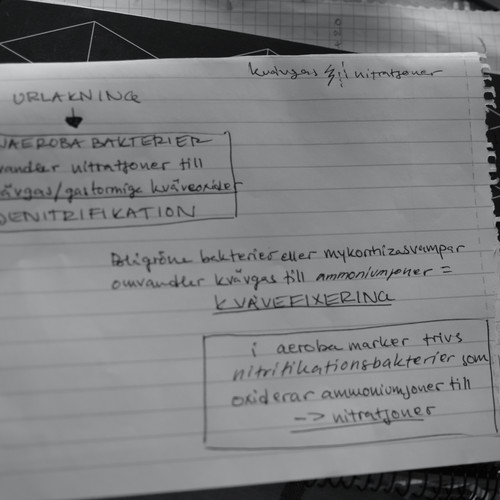 kvävgas i nitratjoner
URLAKNING
NAEROBA BAKTERIER
vandler nitratjoner till
kvävgas/gasformiga kväveoxider
DENITRIFIKATION
Blågröna bakterier eller mykorrhizasvampar
omvandler kvävgas till ammoniumjoner =
KVÄVEFIXERING
i aeroba marker trivs
nitrifikationsbakterier som
oxiderar ammoniumjoner till
-> nitratjoner